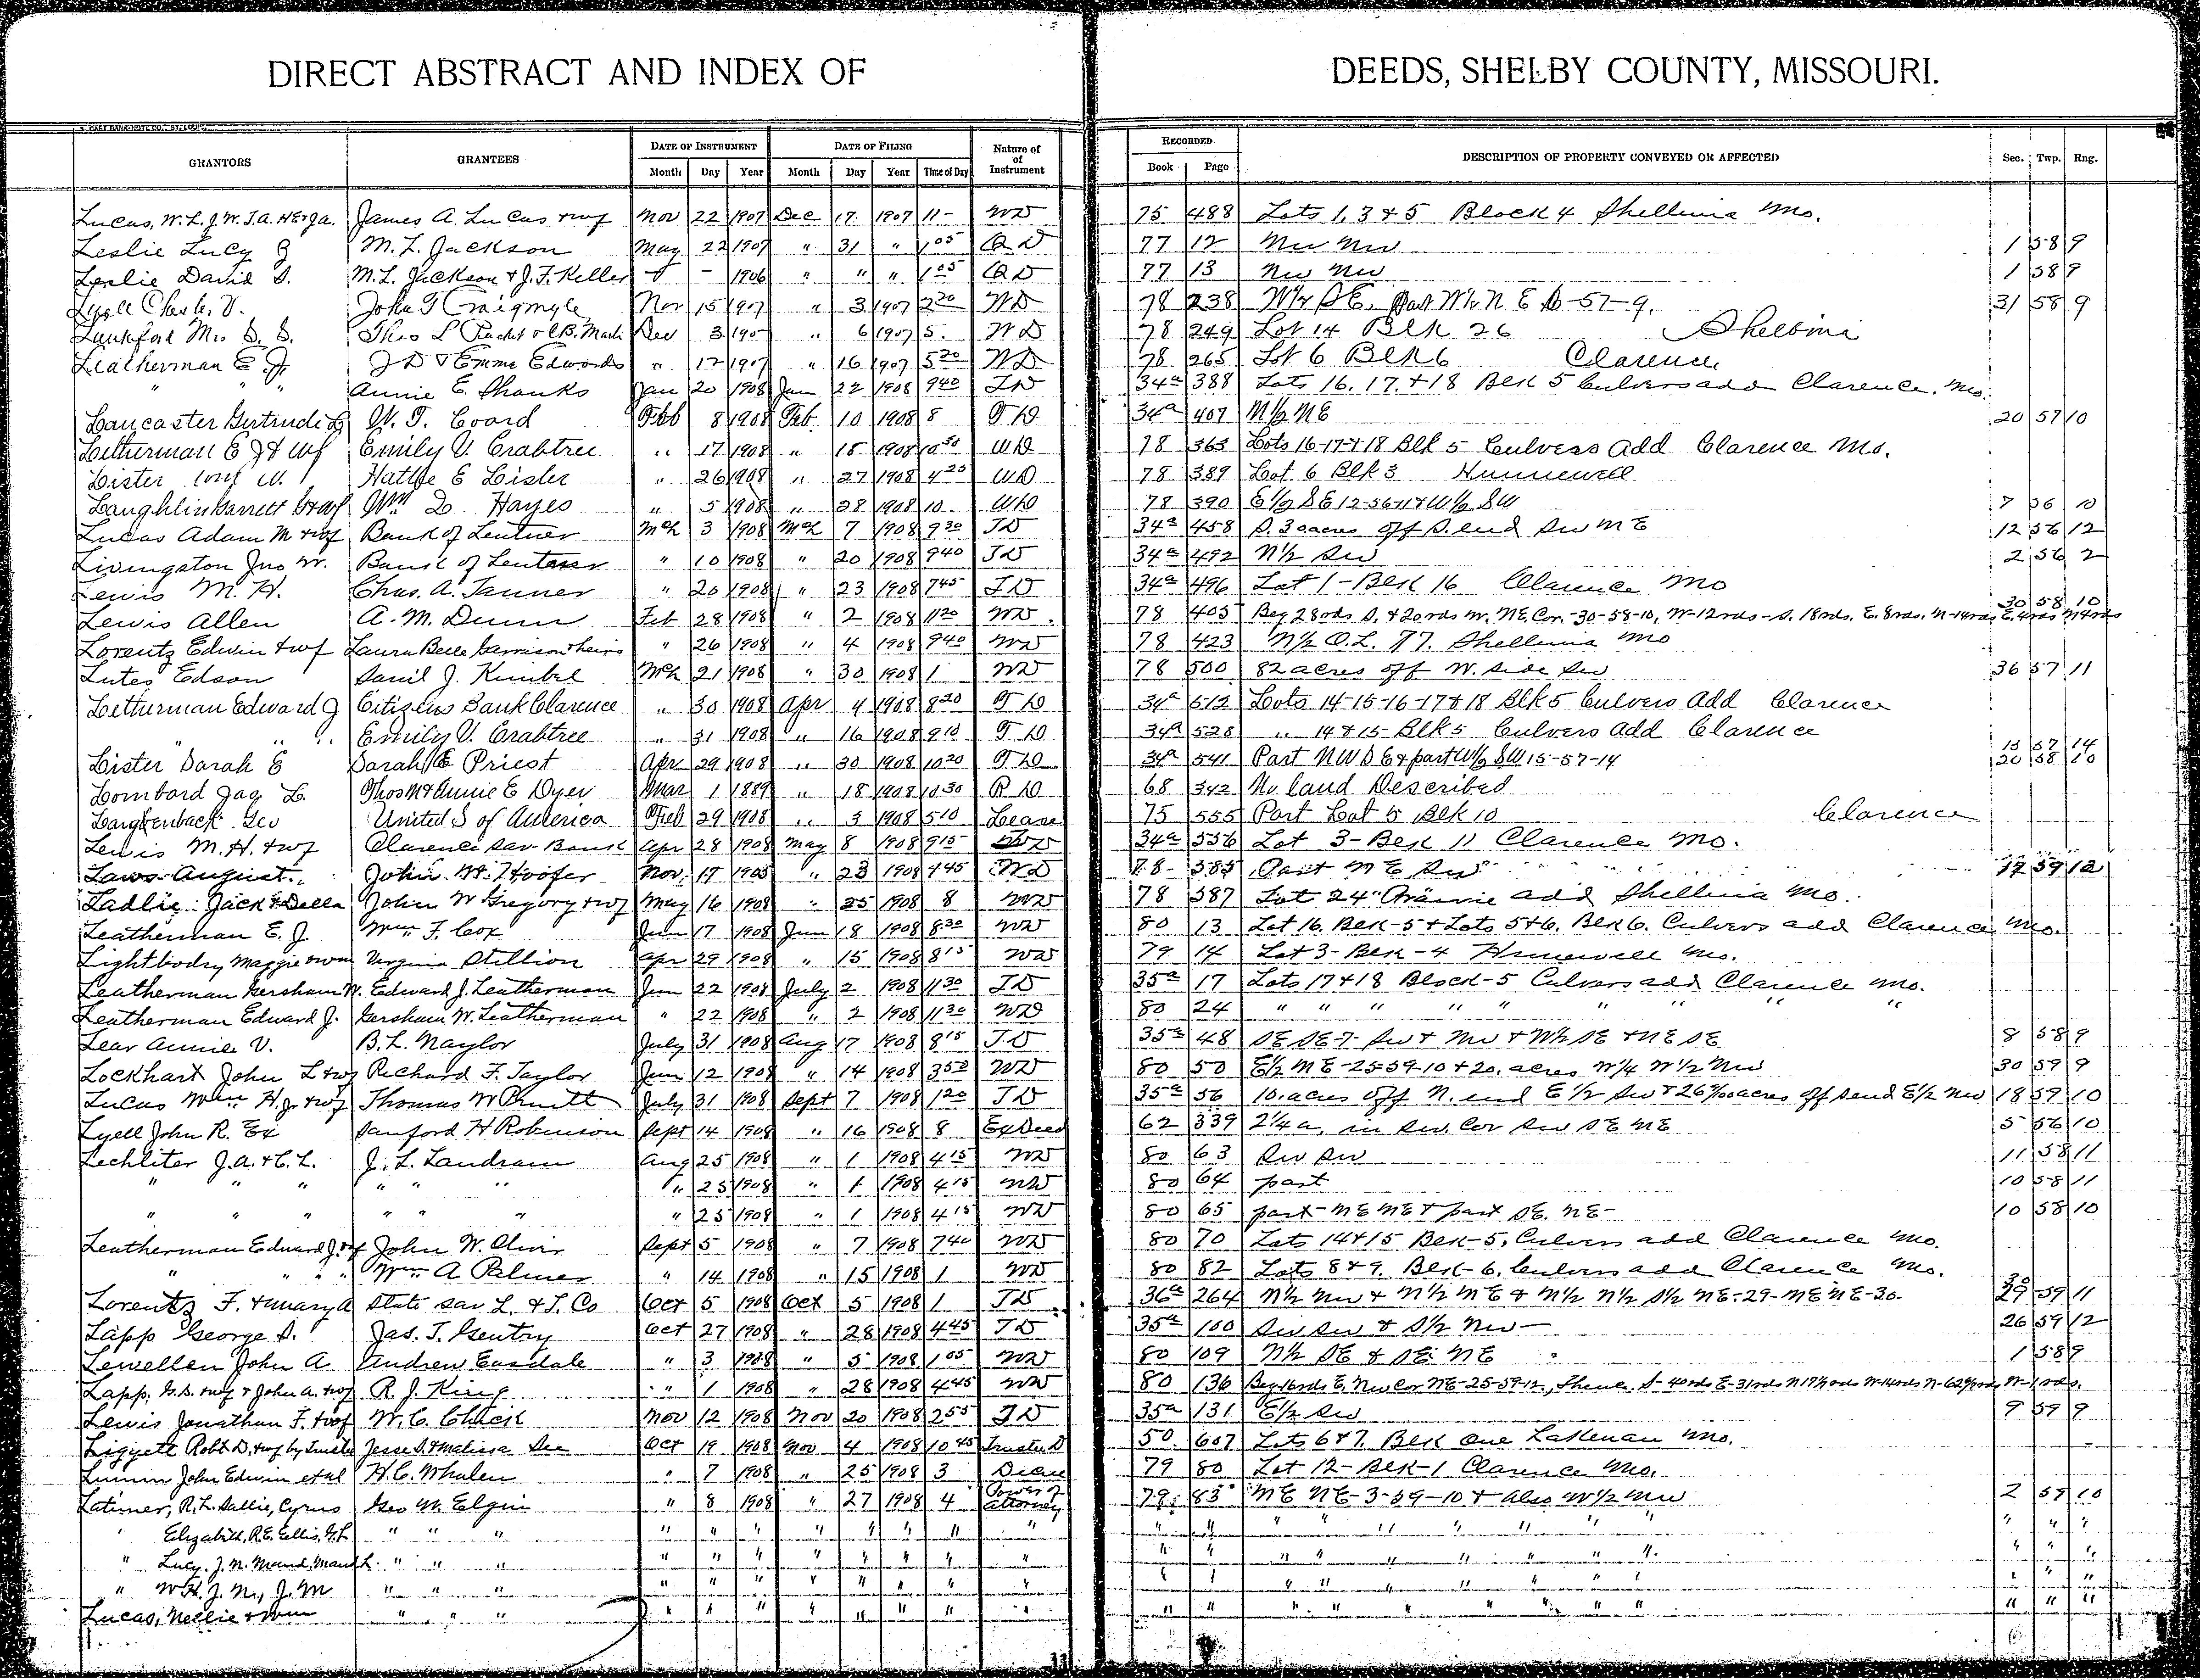 DIRECT ABSTRACT AND INDEX OF DEEDS, SHELBY COUNTY, MISSOURI.
GRANTORS GRANTEES DATE OF INSTRUMENT DATE OF FILING Nature of Instrument RECORDED DESCRIPTION OF PROPERTY CONVEYED OR AFFECTED Sec. Twp. Rng.
Month Day Year Month Day Year Time of Day Book Page
Lucas, W. L. J. W. J. A. James A. Lucas & wf Nov 22 1907 Dec 17 1907 11- WD 75 488 Lots 1, 3 & 5 Block 4 Shelbina Mo.
Leslie Lucy M. L. Jackson May 22 1907 " 31 " 1 05 QD 77 12 NW NW 1 58 9
Leslie David S. M. L. Jackson & J. F. Keller - - 1906 " " " 1 05 QD 77 13 NW NW 1 58 9
Lyell Charles V. John G Craigmyle Nov 15 1907 " 3 1907 2 20 WD 78 238 31 58 9
Lunkford Mrs S. S. Thos L Dec 3 190 " 6 1907 5 WD 78 249 Lot 14 Blk 26 Shelbina
Leatherman E. J. J D & Emma Edwards " 17 1907 " 16 1907 5 20 WD 78 265 Lot 6 Blk 6 Clarence
" " " Annie E. Shanks Jan 20 1908 Jan 22 1908 9 40 TD 34a 388 Lots 16, 17, & 18 Blk 5 Culvers add Clarence. Mo.
Lancaster Gertrude L W. T. Coard Feb 8 1908 Feb 10 1908 8 TD 34a 407 N 1/2 NE 20 57 10
Letherman E J & wf Emily V. Crabtree " 17 1908 " 18 1908 10 30 WD 78 363 Lots 16-17 & 18 Blk 5 Culvers Add Clarence Mo.
Lister W. Hattie E Lister " 26 1908 " 27 1908 4 25 WD 78 389 Lot 6 Blk 3 Hunnewell
Laughlin Garrett & wf Wm D. Hayes " 5 1908 " 28 1908 10 WD 78 390 E 1/2 SE 12-56-11 & W 1/2 SW 7 56 10
Lucas Adam M & wf Bank of Lentner Mch 3 1908 Mch 7 1908 9 30 TD 34a 458 S. 30 acres off S. end SW NE 12 56 12
Livingston Jno W. Bank of Lentner " 10 1908 " 20 1908 9 40 TD 34a 492 N 1/2 SW 2 56 2
Lewis M. H. Chas. A. Tanner " 20 1908 " 23 1908 7 45 TD 34a 496 Lot 1 - Blk 16 Clarence Mo
Lewis Allen A. M. Dunn Feb 28 1908 " 2 1908 11 20 WD 78 405 Beg 28 rds S. & 20 rds W. NE Cor. -30-58-10, W-12 rds - S. 18 rds. E. 8 rds. N-14 rds E. 4 rds N 4 rds 30 58 10
Lorentz Edwin & wf Laura Belle Garrison & heirs " 26 1908 " 4 1908 9 40 WD 78 423 N 1/2 O.L. 77. Shelbina Mo
Lutes Edson Danil J. Kimbel Mch 21 1908 " 30 1908 1 WD 78 500 82 acres off W. side SW 36 57 11
Letherman Edward J Citizens Bank Clarence " 30 1908 Apr 4 1908 8 20 TD 34a 512 Lots 14-15-16-17 & 18 Blk 5 Culvers Add Clarence
" " " Emily V. Crabtree " 31 1908 " 16 1908 9 10 TD 34a 528 " 14 & 15 - Blk 5 Culvers Add Clarence
Lister Sarah E Sarah E Priest Apr 29 1908 " 30 1908 10 20 TD 34a 541 Part NW SE & part W 1/2 SW 15-57-14 15 57 14 20 58 10
Lombard Jas L. Thos N & Annie E Dyer Mar 1 1889 " 18 1908 10 30 RD 68 342 No land Described
Geo United S of America Feb 29 1908 " 3 1908 5 10 Lease 75 555 Part Lot 5 Blk 10 Clarence
Lewis M. H. & wf Clarence Sav Bank Apr 28 1908 May 8 1908 9 15 34a 556 Lot 3 - Blk 11 Clarence Mo.
Laws August John W. Hoofer Nov. 17 1905 " 23 1908 WD 78 585 Part NE SW 59 12
Ladlie Jack & Della John W Gregory & wf May 16 1908 " 25 1908 8 WD 78 587 Lot 24 Prairie add Shelbina Mo.
Leatherman E. J. Wm F. Cox Jun 17 1908 Jun 18 1908 8 30 WD 80 13 Lot 16. Blk-5 & Lots 5 & 6. Blk 6. Culvers add Clarence Mo.
Lightbody Maggie Virginia Stillion Apr 29 1908 " 15 1908 8 15 WD 79 14 Lot 3 - Blk - 4 Hunnewell Mo.
Leatherman Gersham W. Edward J. Leatherman Jun 22 1908 July 2 1908 11 30 TD 35a 17 Lots 17 & 18 Block-5 Culvers add Clarence Mo.
Leatherman Edward J. Gersham W. Leatherman " 22 1908 " 2 1908 11 30 WD 80 24 " " " " " " " " "
Lear Annie V. B. L. Naylor July 31 1908 Aug 17 1908 8 15 TD 35a 48 SE SE-7- SW & NW & W 1/2 SE & NE SE 8 58 9
Lockhart John L & wf Richard F. Taylor Jun 12 1908 " 14 1908 3 50 WD 80 50 E 1/2 NE-25-59-10 & 20. acres W 1/4 W 1/2 NW 30 59 9
Lucas Wm H. Jr & wf Thomas W Pruitt July 31 1908 Sept 7 1908 1 20 TD 35a 56 10. acres off N. end E 1/2 SW & acres off S end E 1/2 NW 18 59 10
Lyell John R. Ex Sanford H Robinson Sept 14 1908 " 16 1908 8 Ex Deed 62 339 2 1/4 a. in SW. Cor SW SE NE 5 56 10
Lechliter J. A. & C. L. J. L. Landram Aug 25 1908 " 1 1908 4 15 WD 80 63 SW SW 11 58 11
" " " " " " " 25 1908 " 1 1908 4 15 WD 80 64 part 10 58 11
" " " " " " " 25 1908 " 1 1908 4 15 WD 80 65 part - NE NE & part SE. NE - 10 58 10
Leatherman Edward J. & wf John W. Sept 5 1908 " 7 1908 7 40 WD 80 70 Lots 14 & 15 Blk-5, Culvers add Clarence Mo.
" " " " Wm A Palmer " 14 1908 " 15 1908 1 WD 80 82 Lots 8 & 9. Blk-6, Culvers add Clarence Mo.
Lorentz F. & Mary A State Sav L. & T. Co Oct 5 1908 Oct 5 1908 1 TD 36a 264 N 1/2 NW & N 1/2 NE & N 1/2 N 1/2 S 1/2 NE-29-NE NE-30- 30 29 59 11
Lapp George S. Jas. T. Gentry Oct 27 1908 " 28 1908 4 45 TD 35a 100 SW SW & S 1/2 NW - 26 59 12
Lewellen John A Andrew Easdale " 3 1908 " 5 1908 1 05 WD 80 109 N 1/2 SE & SE NE 1 58 9
Lapp. G. S. & wf & John A. & wf R. J. King " 1 1908 " 28 1908 4 45 WD 80 136 Beg 16 rds E, NW Cor NE-25-59-12, Thence S-40 rds E-31 rds
Lewis Jonathan F. & wf W. C. Chick Nov 12 1908 Nov 20 1908 2 55 TD 35a 131 E 1/2 SW 9 59 9
Liggett Robt D. & wf by Trustee Jesse S. & Malissa See Oct 19 1908 Nov 4 1908 10 45 Trustee D 50 607 Lots 6 & 7. Blk One Lakenan Mo.
John Edwin et al H. C. Whalen " 7 1908 " 25 1908 3 79 80 Lot 12 - Blk-1 Clarence Mo.
Latimer, R. L. Sallie, Cyrus Geo W. Elgin " 8 1908 " 27 1908 4 Power of Attorney 79 83 NE NE-3-59-10 & Also W 1/2 NW 2 59 10
" Elizabeth, R. E. Ellis, G. L " " " " " " " " " " " " " " " " " " " " " " " "
" Lucy. J. N. Maud, Maud L. " " " " " " " " " " " " " " " " " " " " " " "
" W. H. J. M., J. M " " " " " " " " " " " " " " " " " " " " " " "
Lucas, Nellie " " " " " " " " " " " " " " " " " " " " " " "